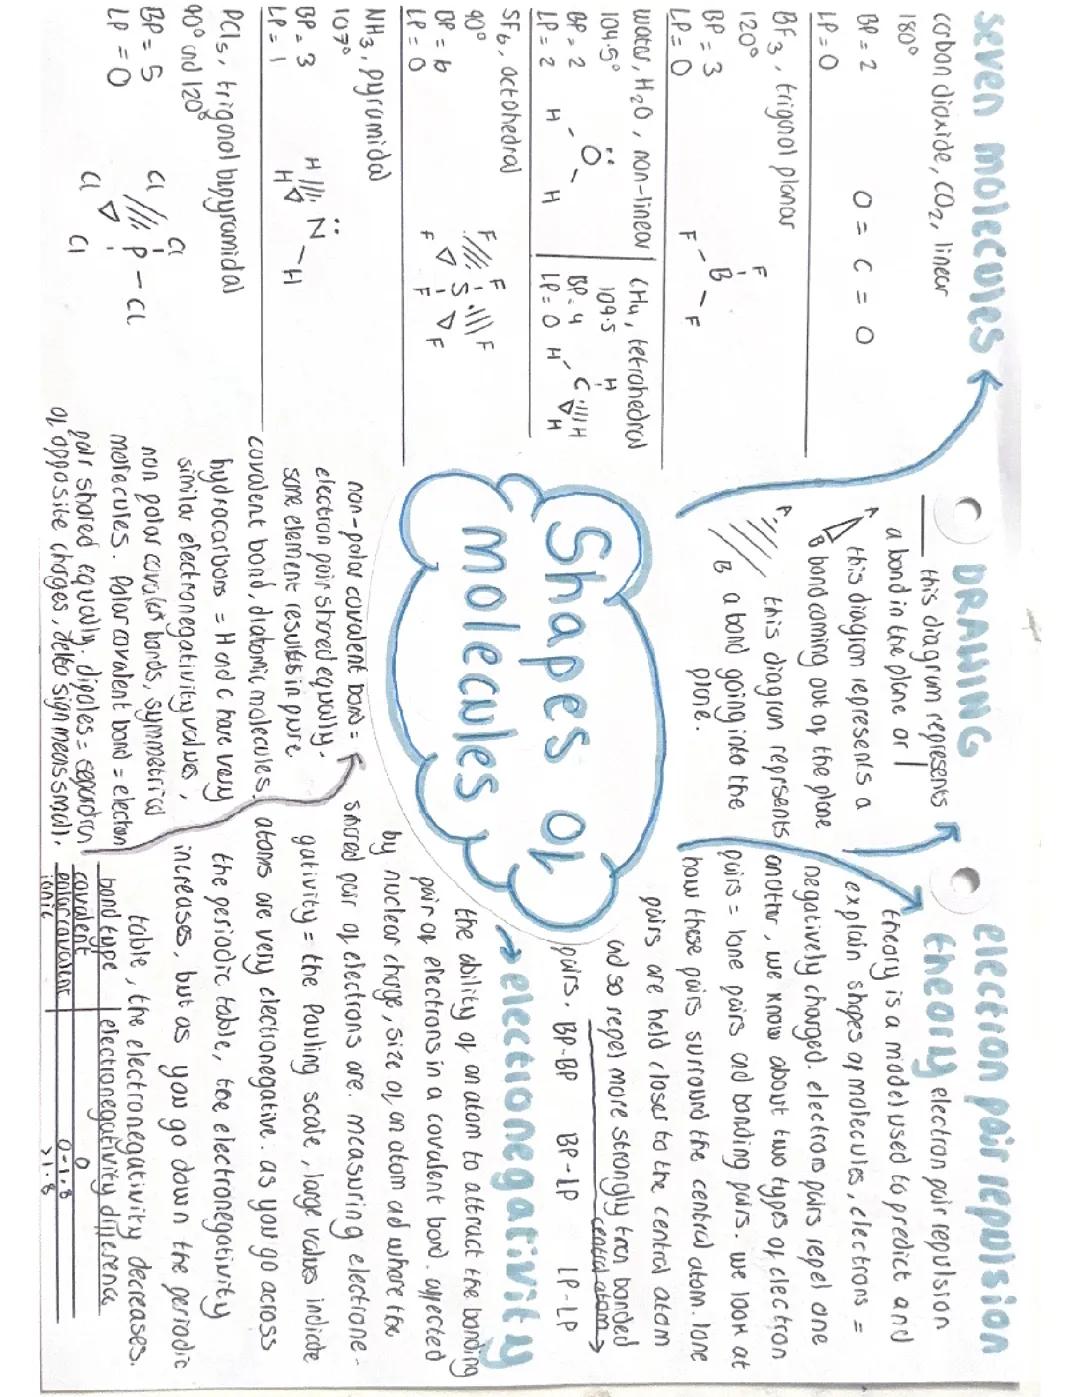 seven molecules
carbon dioxide, CO2, linear
180°
BP = 2
LP = 0
O = C = O
BF3, trigonal planar
120°
BP = 3
LP = 0
F
B
F
F
water, H2O, non-linear
104.5°
BP = 2
LP = 2
O
H
H
CH4, tetrahedral
109.5
BP = 4
LP = 0
H
C
H
H
H
SF6, octahedral
90°
BP = 6
LP = 0
F
F
F
S
F
F
F
NH3, pyramidal
107°
BP = 3
LP = 1
N
H
H
H
PCl5, trigonal bipyramidal
90° and 120°
BP = 5
LP = 0
Cl
Cl
P - Cl
Cl
Cl
DRAWING
this diagram represents
a bond in the plane or |
A
B
this diagram represents a
bond coming out of the plane
A
B
this diagram reprsents
a bond going into the
plane.
Shapes of
molecules
electron pair repulsion
theory
electron pair repulsion
theory is a model used to predict and
explain shapes of molecules, electrons =
negatively charged. electron pairs repel one
another, we know about two types of electron
pairs = lone pairs and bonding pairs. we look at
how these pairs surround the central atom. lone
pairs are held closer to the central atom
and so repel more strongly than bonded
pairs.
central atom
BP-BP BP-LP LP-LP
electronegativity
the ability of an atom to attract the bonding
pair of electrons in a covalent bond. affected
by nuclear charge, size of an atom and where the
shared pair of electrons are. measuring electrone-
gativity = the Pauling scale, large values indicate
atoms are very electronegative. as you go across
the periodic table, the electronegativity
increases, but as you go down the periodic
table, the electronegativity decreases.
bond type electronegativity difference
covalent 0
polar covalent 0-1.8
ionic >1.8
non-polar covalent bond =
electron pair shared equally.
same element results in pure
covalent bond, diatomic molecules.
hydrocarbons = H and C have very
similar electronegativity values,
non polar covalent bonds, symmetrical
molecules. Polar covalent bond = electron
pair shared equally. dipoles = separation
of opposite charges, delta sign means small.